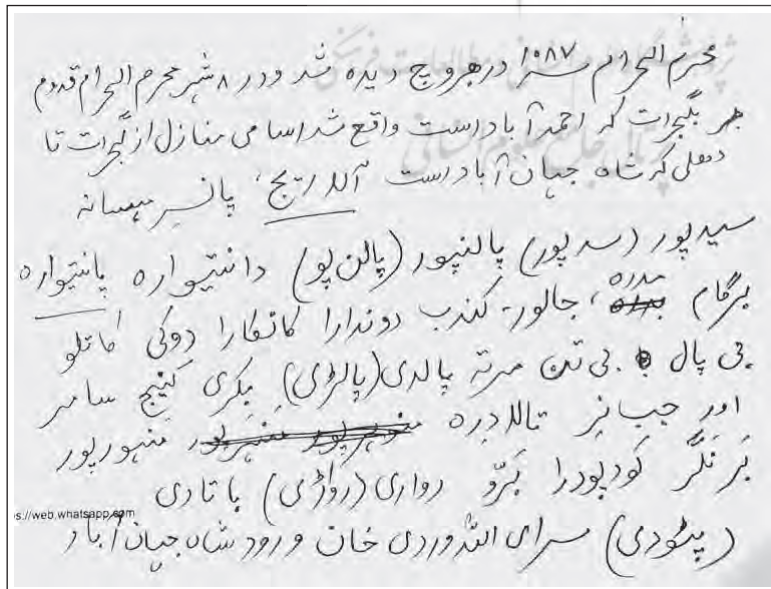 محرم الحرام سنه ۱۰۸۷ در هروچ دیده شد و در ۸ شهر محرم الحرام قدوم
بگجرات که احمد آباد است واقع شد اسامی منازل از گجرات تا
دهلی که شاه جهان آباد است آللا ریج، پانسر میسانه
سیدپور (سدپور) پالنپور (پالن پو) دانتیواره پانتیواره
برگام مدره، جالور- کندب دوندارا کانکارا دوکی کاتلو
بی پال بی تن مرته پالدی (پالڑی) بکری کنیج سامر
اور جبانر تالادره منهورپور
بَرنگر کودپودرا بَرّو رواری (رواڑی) پاتادی
s://web.whatsapp.com
(پٹودی) سرای الله وردی خان ورود شاه جهان آباد